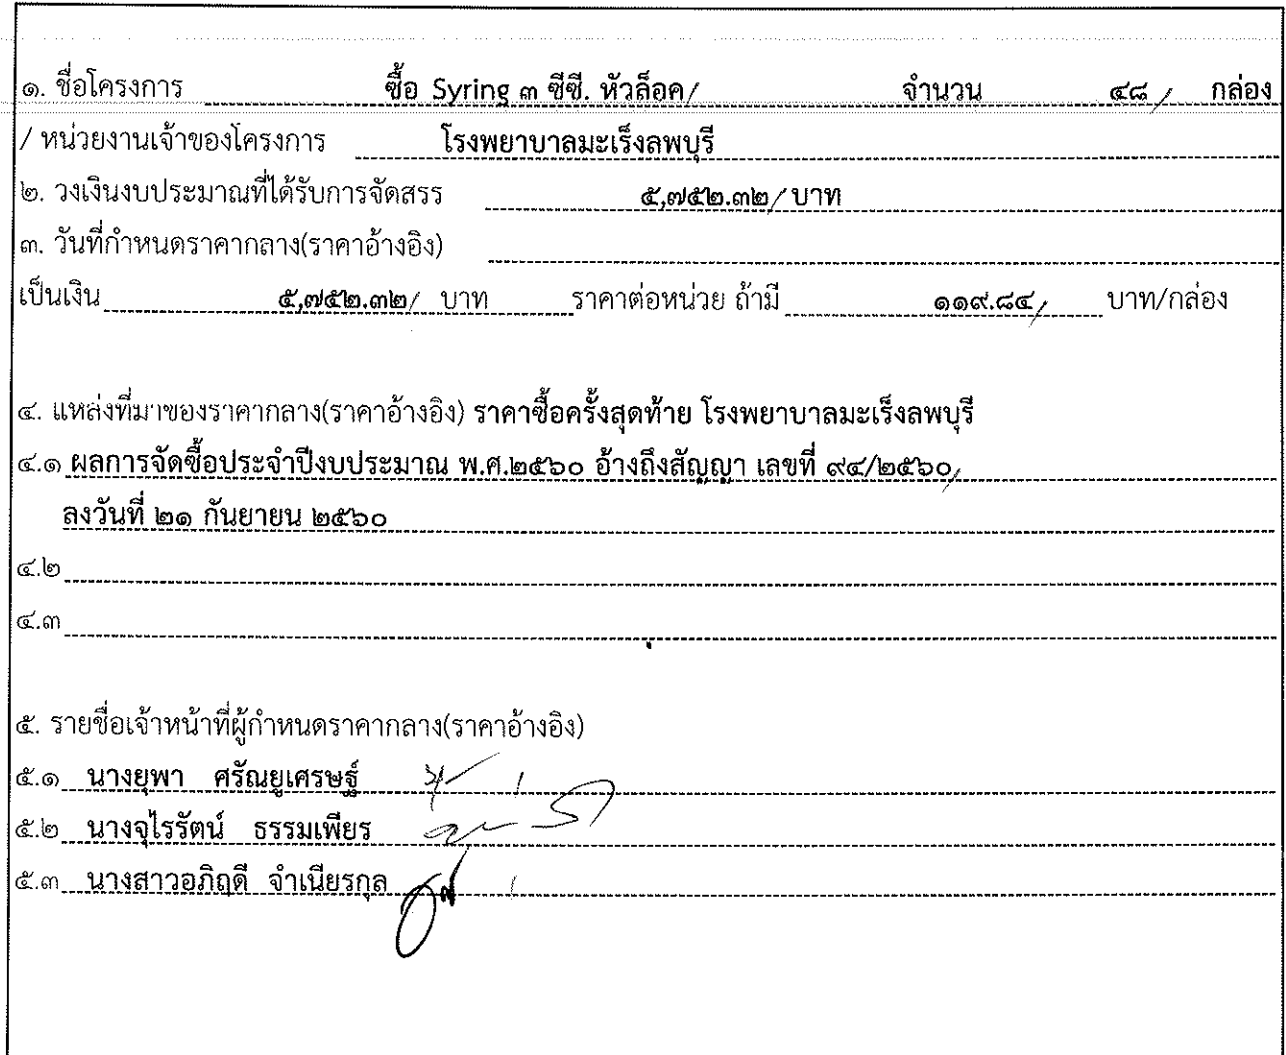 ๑. ชื่อโครงการ ซื้อ Syring ๓ ซีซี. หัวล็อค/ จำนวน ๔๘ / กล่อง
/ หน่วยงานเจ้าของโครงการ โรงพยาบาลมะเร็งลพบุรี
๒. วงเงินงบประมาณที่ได้รับการจัดสรร ๕,๗๕๒.๓๒/ บาท
๓. วันที่กำหนดราคากลาง(ราคาอ้างอิง)
เป็นเงิน ๕,๗๕๒.๓๒/ บาท ราคาต่อหน่วย ถ้ามี ๑๑๙.๘๔/ บาท/กล่อง
๔. แหล่งที่มาของราคากลาง(ราคาอ้างอิง) ราคาซื้อครั้งสุดท้าย โรงพยาบาลมะเร็งลพบุรี
๔.๑ ผลการจัดซื้อประจำปีงบประมาณ พ.ศ.๒๕๖๐ อ้างถึงสัญญา เลขที่ ๙๔/๒๕๖๐/
ลงวันที่ ๒๑ กันยายน ๒๕๖๐
๔.๒
๔.๓
๕. รายชื่อเจ้าหน้าที่ผู้กำหนดราคากลาง(ราคาอ้างอิง)
๕.๑ นางยุพา ศรัณยูเศรษฐ์
๕.๒ นางจุไรรัตน์ ธรรมเพียร
๕.๓ นางสาวอภิฤดี จำเนียรกุล